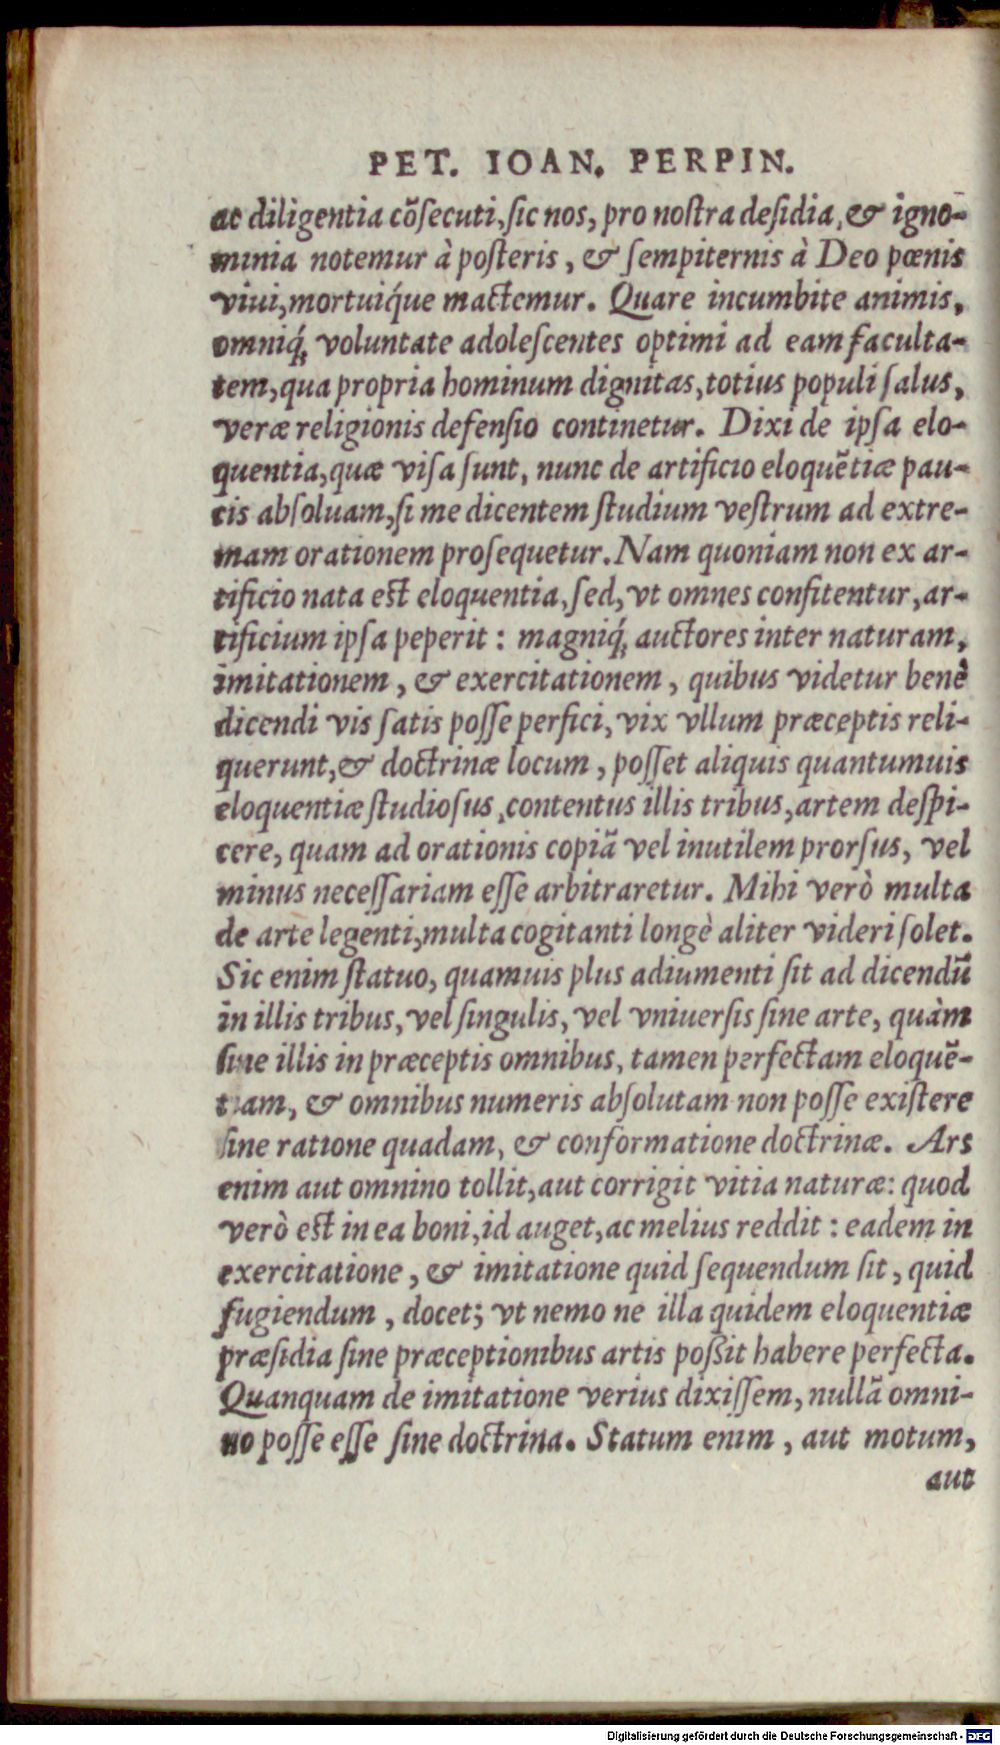 PET. IOAN. PERPIN.
ac diligentia cõſecuti, ſic nos, pro noſtra deſidia, & igno-
minia notemur à poſteris, & ſempiternis à Deo pœnis
viui, mortuiq́ue mactemur. Quare incumbite animis,
omniq́; voluntate adoleſcentes optimi ad eam faculta-
tem, qua propria hominum dignitas, totius populi ſalus,
veræ religionis defenſio continetur. Dixi de ipſa elo-
quentia, quæ viſa ſunt, nunc de artificio eloquẽtiæ pau-
cis abſoluam, ſi me dicentem ſtudium veſtrum ad extre-
mam orationem proſequetur. Nam quoniam non ex ar-
tificio nata eſt eloquentia, ſed, vt omnes confitentur, ar-
tificium ipſa peperit: magniq́; auctores inter naturam,
imitationem, & exercitationem, quibus videtur benè
dicendi vis ſatis poſſe perfici, vix vllum præceptis reli-
querunt, & doctrinæ locum, poſſet aliquis quantumuis
eloquentiæ ſtudioſus, contentus illis tribus, artem deſpi-
cere, quam ad orationis copiã vel inutilem prorſus, vel
minus neceſſariam eſſe arbitraretur. Mihi verò multa
de arte legenti, multa cogitanti longè aliter videri ſolet.
Sic enim ſtatuo, quamuis plus adiumenti ſit ad dicendũ
in illis tribus, vel ſingulis, vel vniuerſis ſine arte, quàm
ſine illis in præceptis omnibus, tamen perfectam eloquẽ-
tiam, & omnibus numeris abſolutam non poſſe exiſtere
ſine ratione quadam, & conformatione doctrinæ. Ars
enim aut omnino tollit, aut corrigit vitia naturæ: quod
verò eſt in ea boni, id auget, ac melius reddit: eadem in
exercitatione, & imitatione quid ſequendum ſit, quid
fugiendum, docet; vt nemo ne illa quidem eloquentiæ
præſidia ſine præceptionibus artis poſsit habere perfecta.
Quanquam de imitatione verius dixiſſem, nullã omni-
no poſſe eſſe ſine doctrina. Statum enim, aut motum,
aut
Digitalisierung gefördert durch die Deutsche Forschungsgemeinschaft - DFG